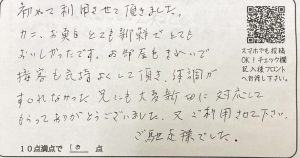 初めて利用させて頂きました。
カニ、お魚白とても新鮮でとても
おいしかったです。お部屋もきれいで
接客も気持よくして頂き、体調が
すぐれなかった兄にも大変親切に対応して
もらってありがとうございました。又ご利用させて下さい。
ご馳走様でした。
10点満点で（10）点
スマホでも投稿
OK！チェック欄
記入後フロント
へお渡し下さい。